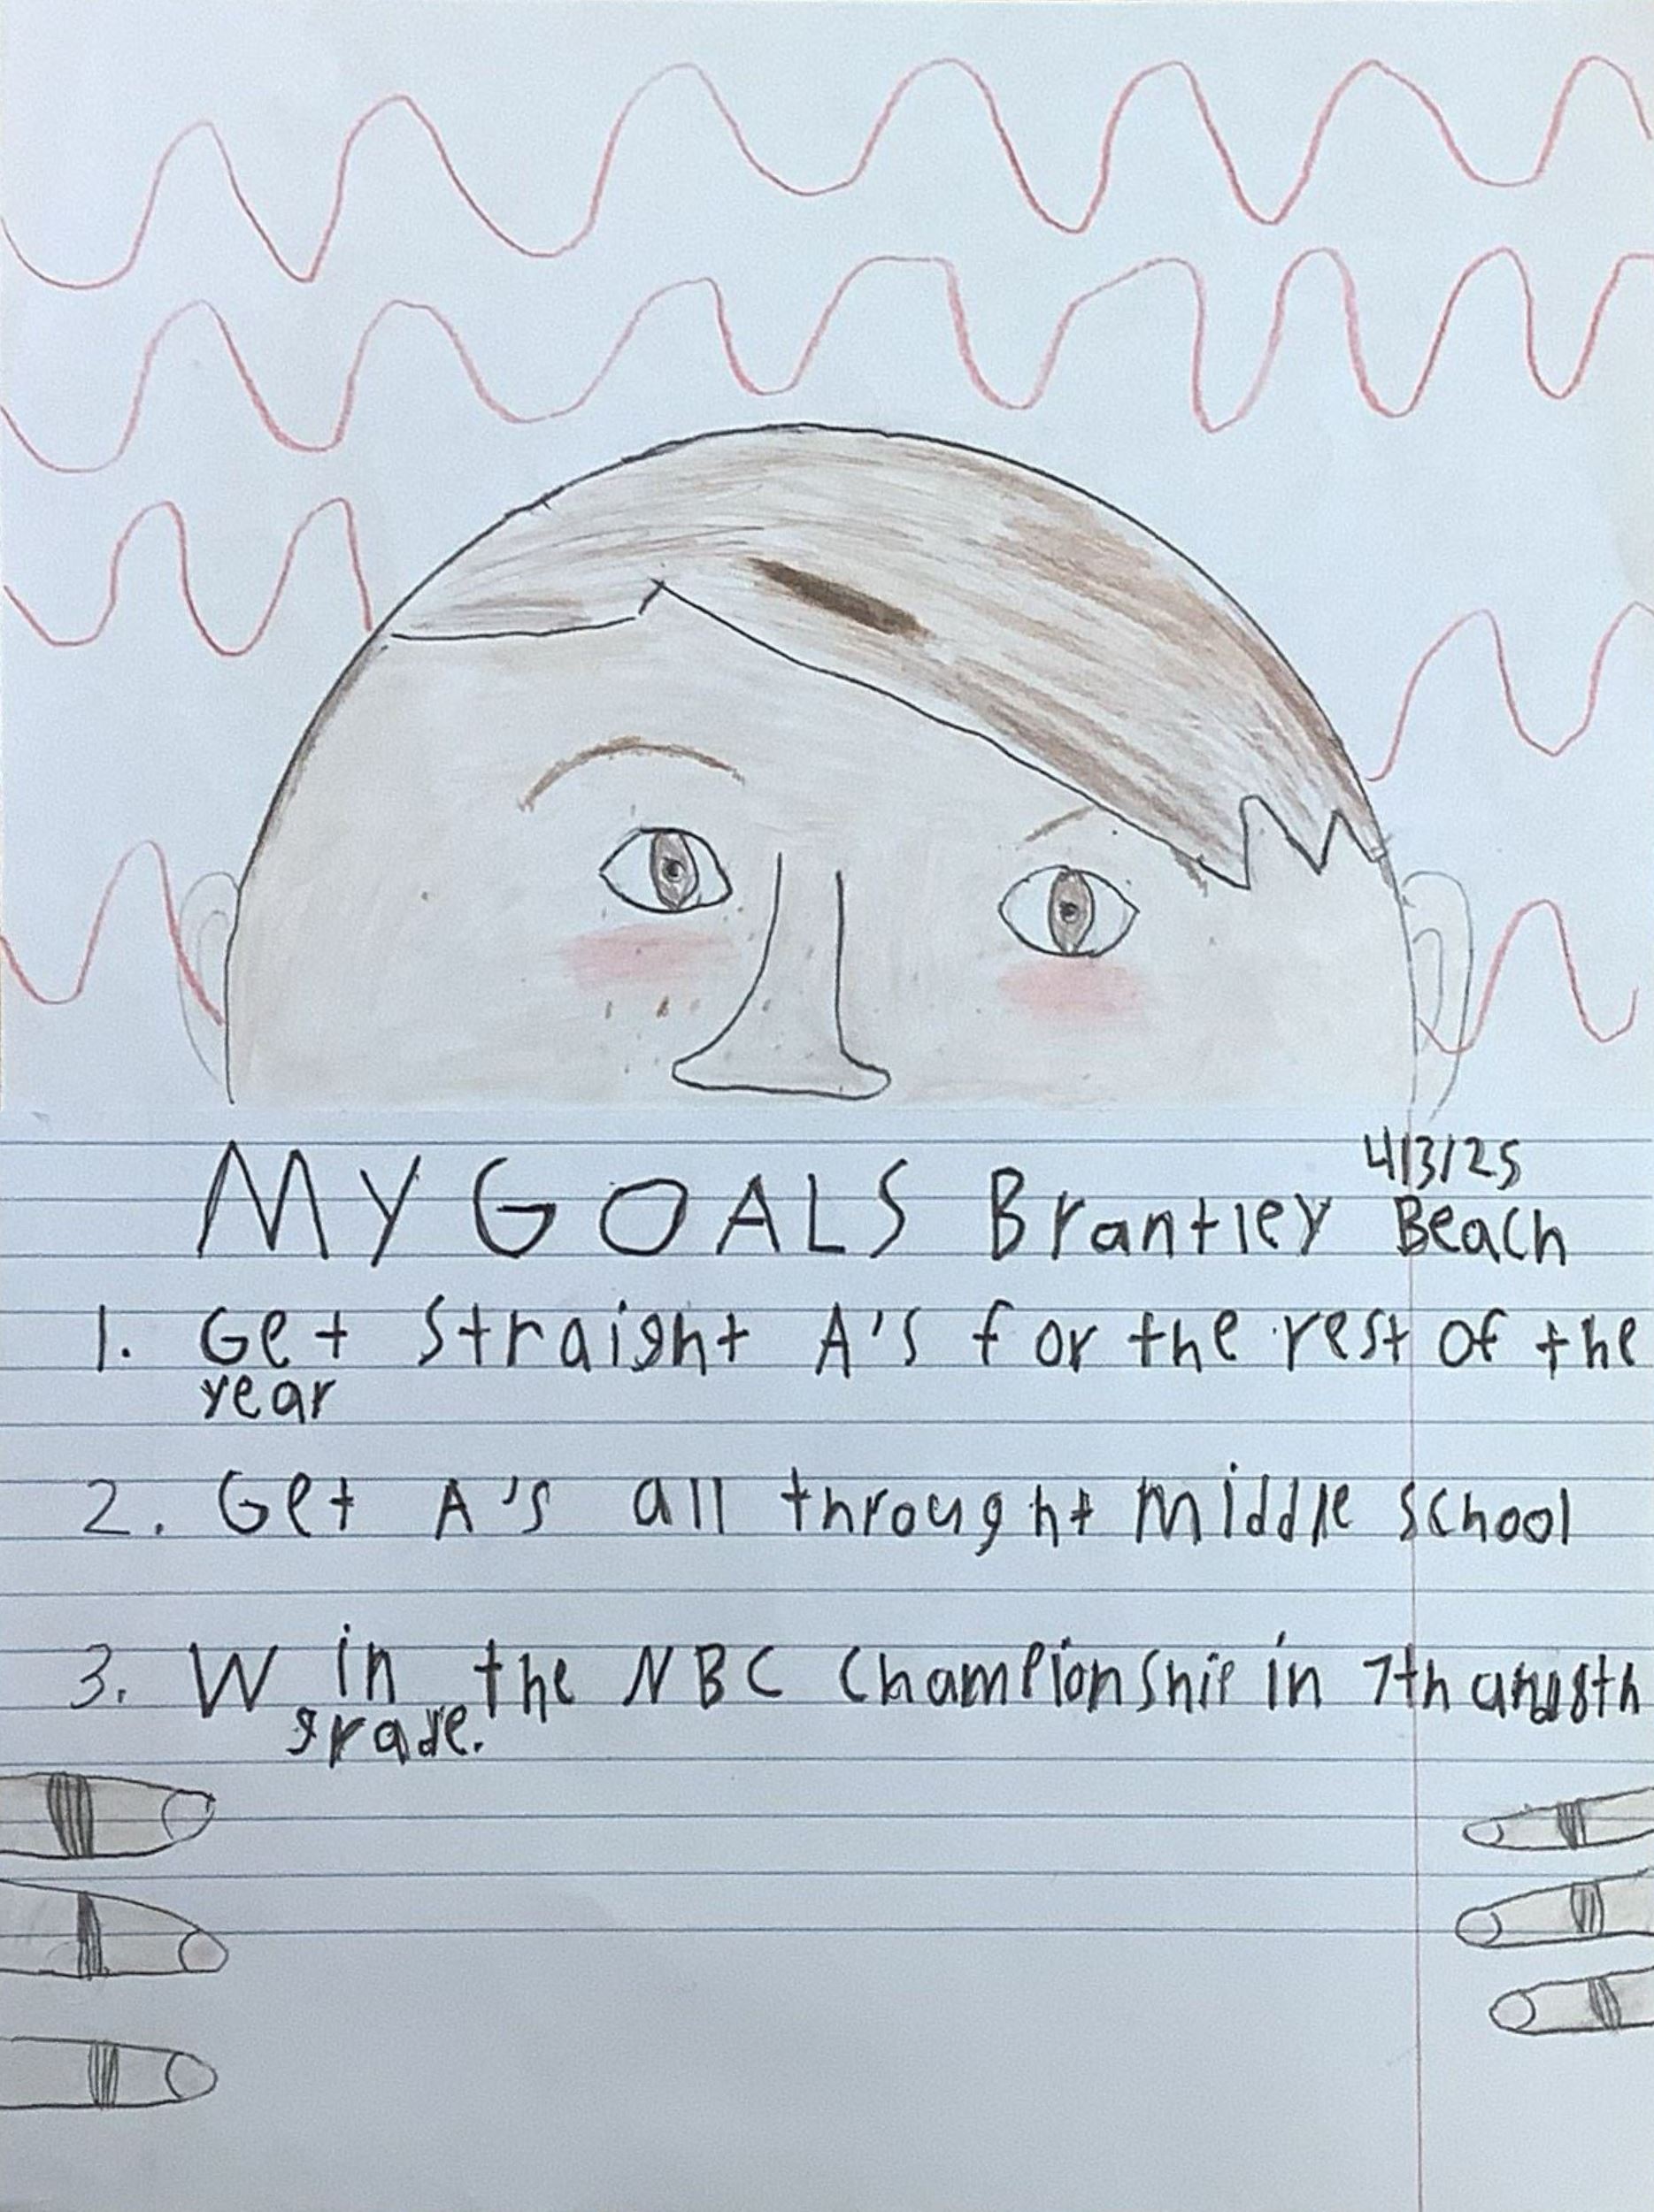 4/3/25
MY GOALS Brantley Beach
1. Get straight A's for the rest of the
year
2. Get A's all throught middle school
3. Win the NBC Championship in 7th and 8th
grade.